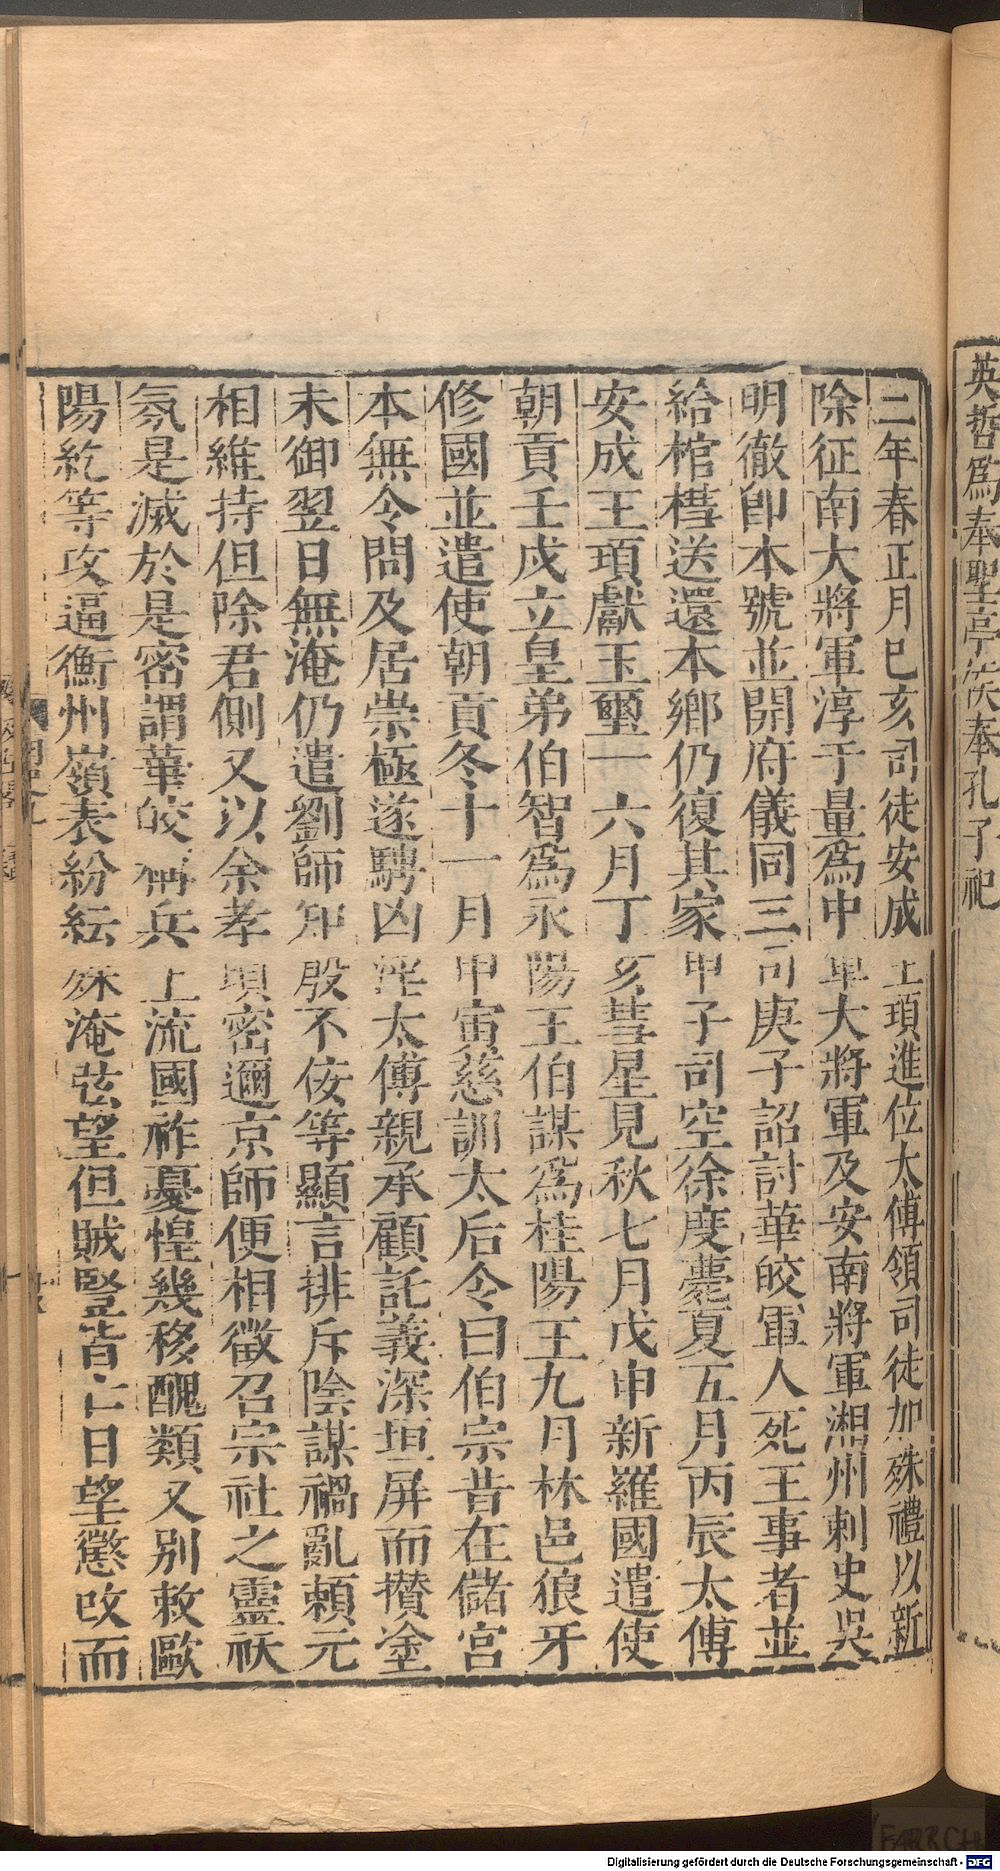 英哲爲奉聖亭侯奉孔子祀
二年春正月巳亥司徒安成王頊進位太傅領司徒加殊禮以新
除征南大將軍淳于量爲中軍大將軍及安南將軍湘州刺史吳
明徹卽本號並開府儀同三司庚子詔討華皎軍人死王事者並
給棺槥送還本鄉仍復其家甲子司空徐度薨夏五月丙辰太傅
安成王頊獻玉璽一六月丁亥彗星見秋七月戊申新羅國遣使
朝貢壬戌立皇弟伯智爲永陽王伯謀爲桂陽王九月林邑狼牙
修國並遣使朝貢冬十一月甲寅慈訓太后令曰伯宗昔在儲宮
本無令問及居崇極遂騁凶淫太傅親承顧託義深垣屏而攢塗
未御翌日無淹仍遣劉師知殷不佞等顯言排斥陰謀禍亂賴元
相維持但除君側又以余孝頃密邇京師便相徵召宗社之靈祅
氛是滅於是密謂華皎稱兵上流國祚憂惶幾移醜類又別敕歐
陽紇等攻逼衡州嶺表紛紜殊淹弦望但賊豎皆亡日望懲改而
Digitalisierung gefördert durch die Deutsche Forschungsgemeinschaft - DFG